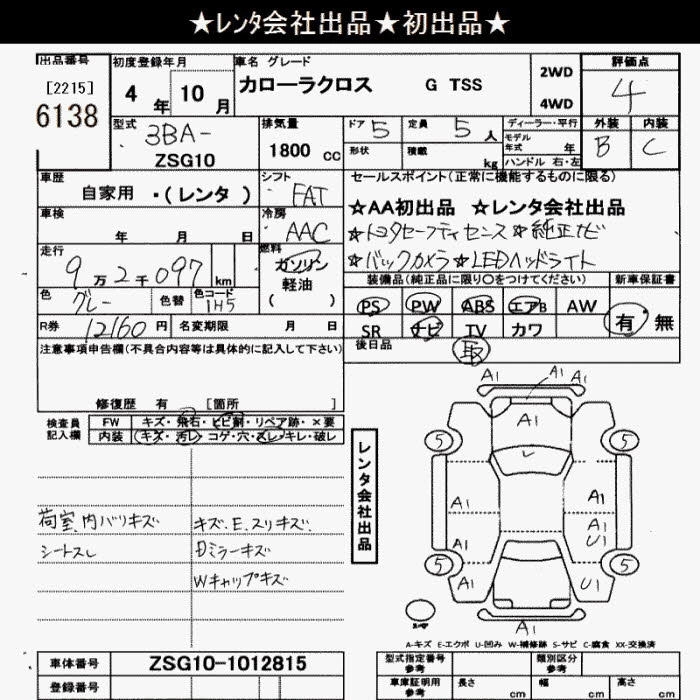 ★レンタ会社出品★初出品★
出品番号
[2215]
6138
初度登録年月
4 年 10 月
車名 グレード
カローラクロス G TSS
2WD
4WD
評価点
4
型式
3BA-
ZSG10
排気量
1800 cc
ドア 5
定員 5 人
形状
積載 kg
ディーラー・平行
モデル年式 年
ハンドル 右・左
外装 B
内装 C
車歴
自家用 ・(レンタ)
シフト FAT
車検 年 月 日
冷房 AAC
走行
9万2千097 km
燃料
ガソリン
軽油
( )
色 グレー
色替
色コード 1H5
R券 12160 円
名変期限 月 日
セールスポイント(正常に機能するものに限る)
☆AA初出品 ☆レンタ会社出品
☆トヨタセーフティセンス☆純正ナビ
☆バックカメラ☆LEDヘッドライト
装備品(純正品に限り○をつけてください)
PS PW ABS エアB AW
SR ナビ TV カワ
新車保証書
有・無
後日品
取
注意事項申告欄(不具合内容等は具体的に記入して下さい)
修復歴 有 [箇所 ]
検査員記入欄
FW キズ・飛石・ヒビ割・リペア跡・×要
内装 キズ・汚レ・コゲ・穴・スレ・キレ・破レ
荷室、内バリキズ
キズ、E、スリキズ、
シートスレ
Dミラーキズ
Wキャップキズ
レンタ会社出品
A1 A1 A1
A1
5 5
A1 A1
A1 A1
U1
5 5
A1 U1
A1
A-キズ E-エクボ U-凹み W-補修跡 S-サビ C-腐食 XX-交換済
車体番号 ZSG10-1012815
登録番号
型式指定番号 参考
類別区分 参考
車庫証明用 参考
長さ cm
幅 cm
高さ cm